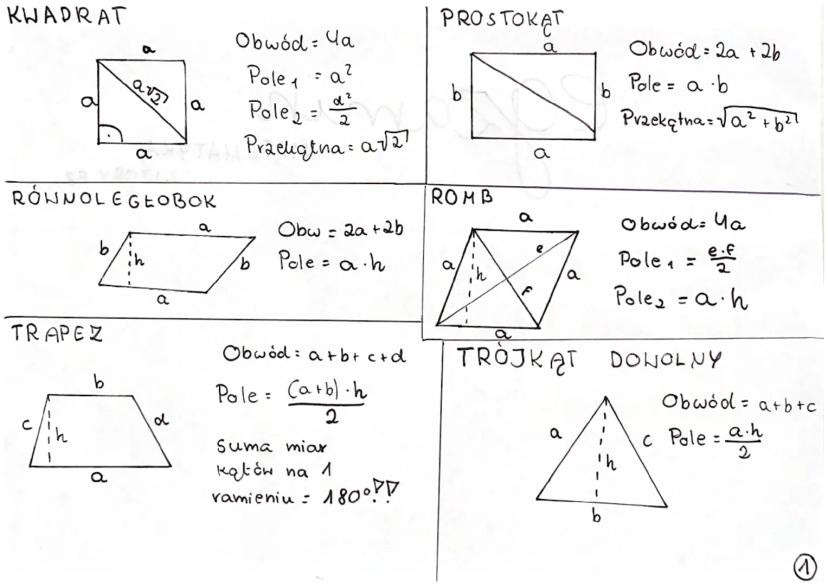 KWADRAT
a
a
a√2
a
a
Obwód = 4a
Pole₁ = a²
Pole₂ = d²/2
Przekątna = a√2
PROSTOKĄT
a
b
b
a
Obwód = 2a + 2b
Pole = a · b
Przekątna = √a² + b²
RÓWNOLEGŁOBOK
a
b
h
b
a
Obw = 2a + 2b
Pole = a · h
ROMB
a
e
a
h
a
f
a
Obwód = 4a
Pole₁ = e·f/2
Pole₂ = a · h
TRAPEZ
b
c
h
d
a
Obwód = a + b + c + d
Pole = (a+b) · h/2
suma miar
kątów na 1
ramieniu = 180°!!
TRÓJKĄT DOWOLNY
a
h
c
b
Obwód = a + b + c
Pole = a·h/2
1